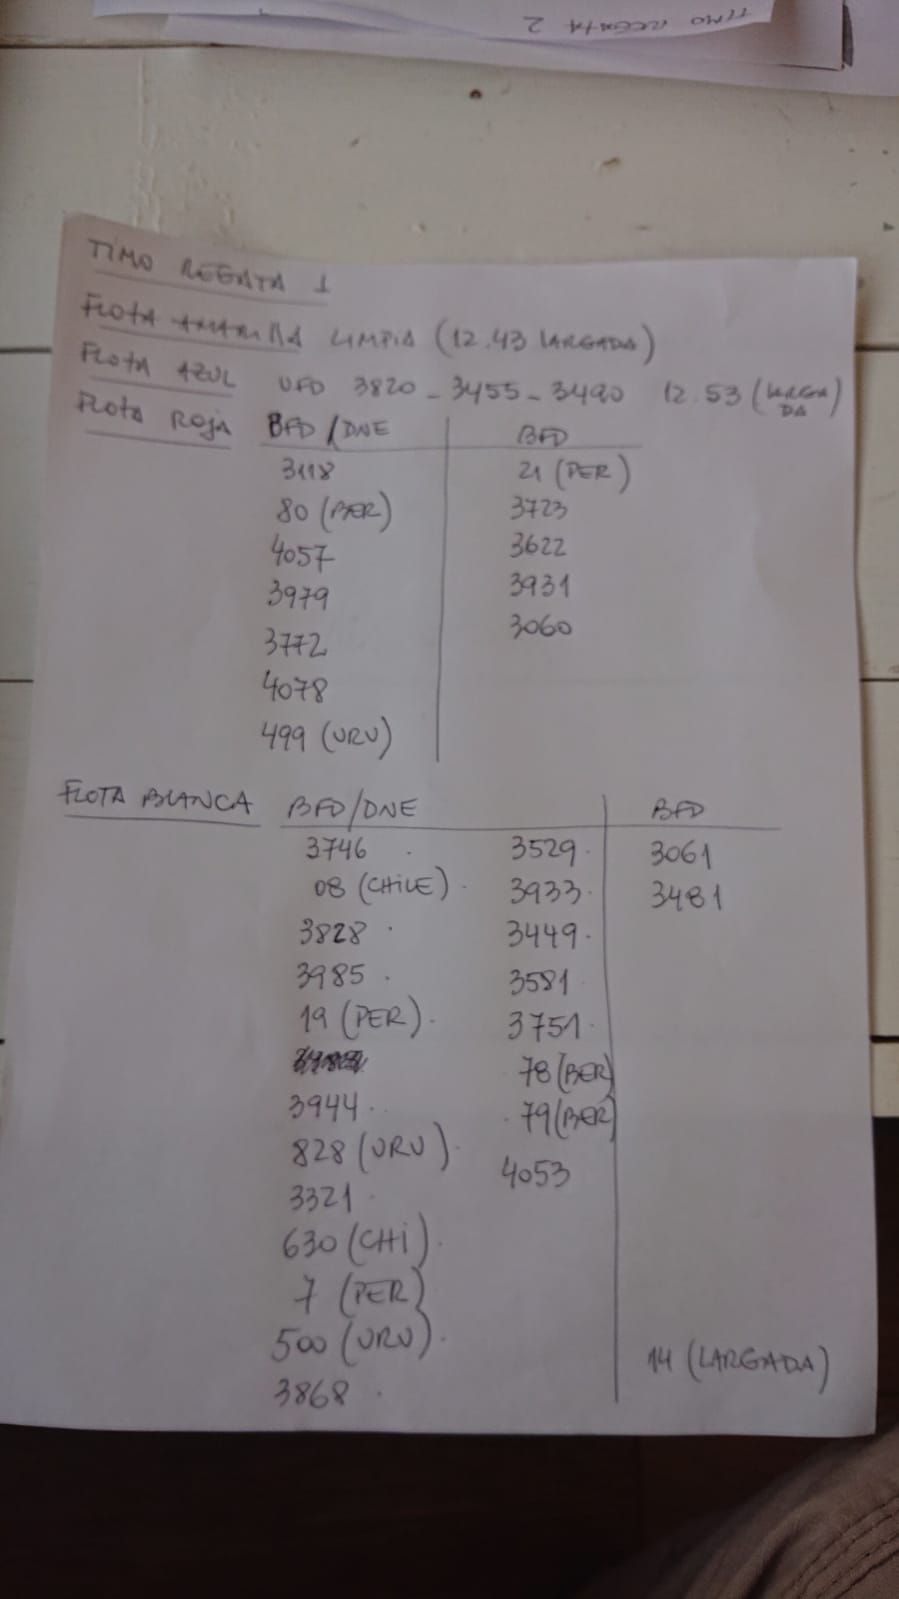 TIMO REGATA 2
TIMO REGATA 1
FLOTA AMARILLA LIMPIA (12.43 LARGADA)
FLOTA AZUL UFD 3820 - 3455 - 3490 12.53 (LARGADA)
FLOTA ROJA BFD/DNE BFD
3118 21 (PER)
80 (BER) 3723
4057 3622
3979 3931
3772 3060
4078
499 (URU)
FLOTA BLANCA BFD/DNE BFD
3746 . 3529 . 3061
08 (CHILE) . 3933 . 3481
3828 . 3449 .
3985 . 3581 .
19 (PER) . 3751 .
. 78 (BER)
3944 . . 79 (BER)
828 (URU) . 4053
3321 .
630 (CHI) .
7 (PER)
500 (URU) . 14 (LARGADA)
3868 .